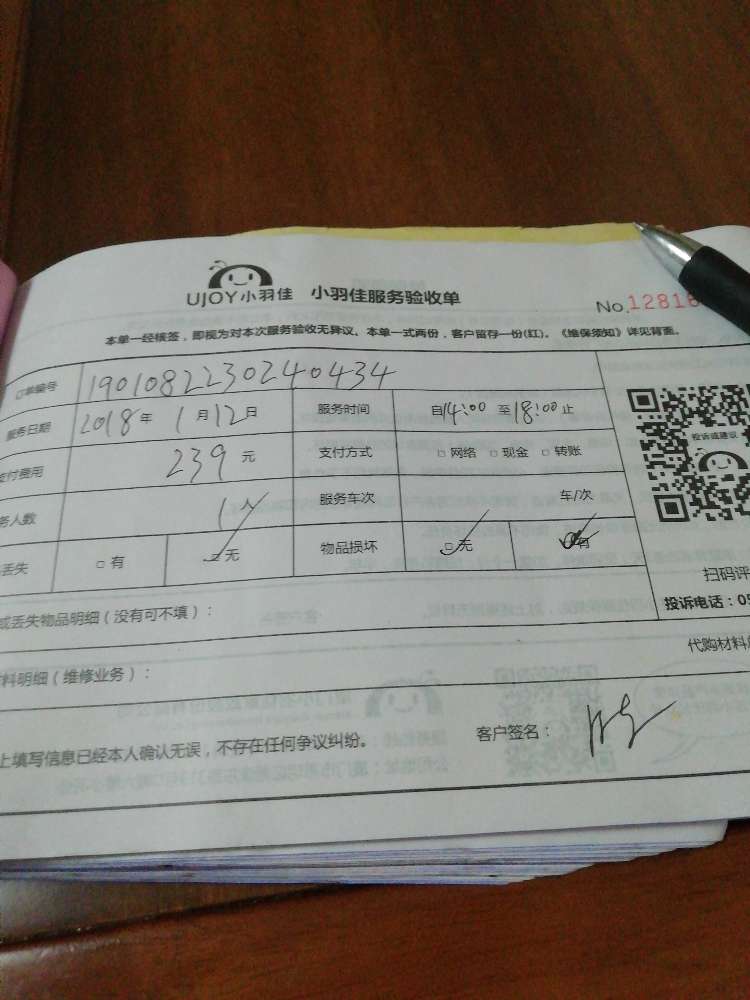 UJOY小羽佳 小羽佳服务验收单
No.12816
本单一经核签，即视为对本次服务验收无异议。本单一式两份，客户留存一份(红)。《维保须知》详见背面。
订单编号 1901082230240434
服务日期 2018年 1月12日 服务时间 自14:00 至18:00止
支付费用 239元 支付方式 □ 网络 □ 现金 □ 转账
务人数 1人 服务车次 车/次
丢失 □ 有 □ 无 物品损坏 □ 无 有
投诉或建议
扫码评
或丢失物品明细（没有可不填）：
投诉电话：05
料明细（维修业务）：
代购材料
上填写信息已经本人确认无误，不存在任何争议纠纷。 客户签名：